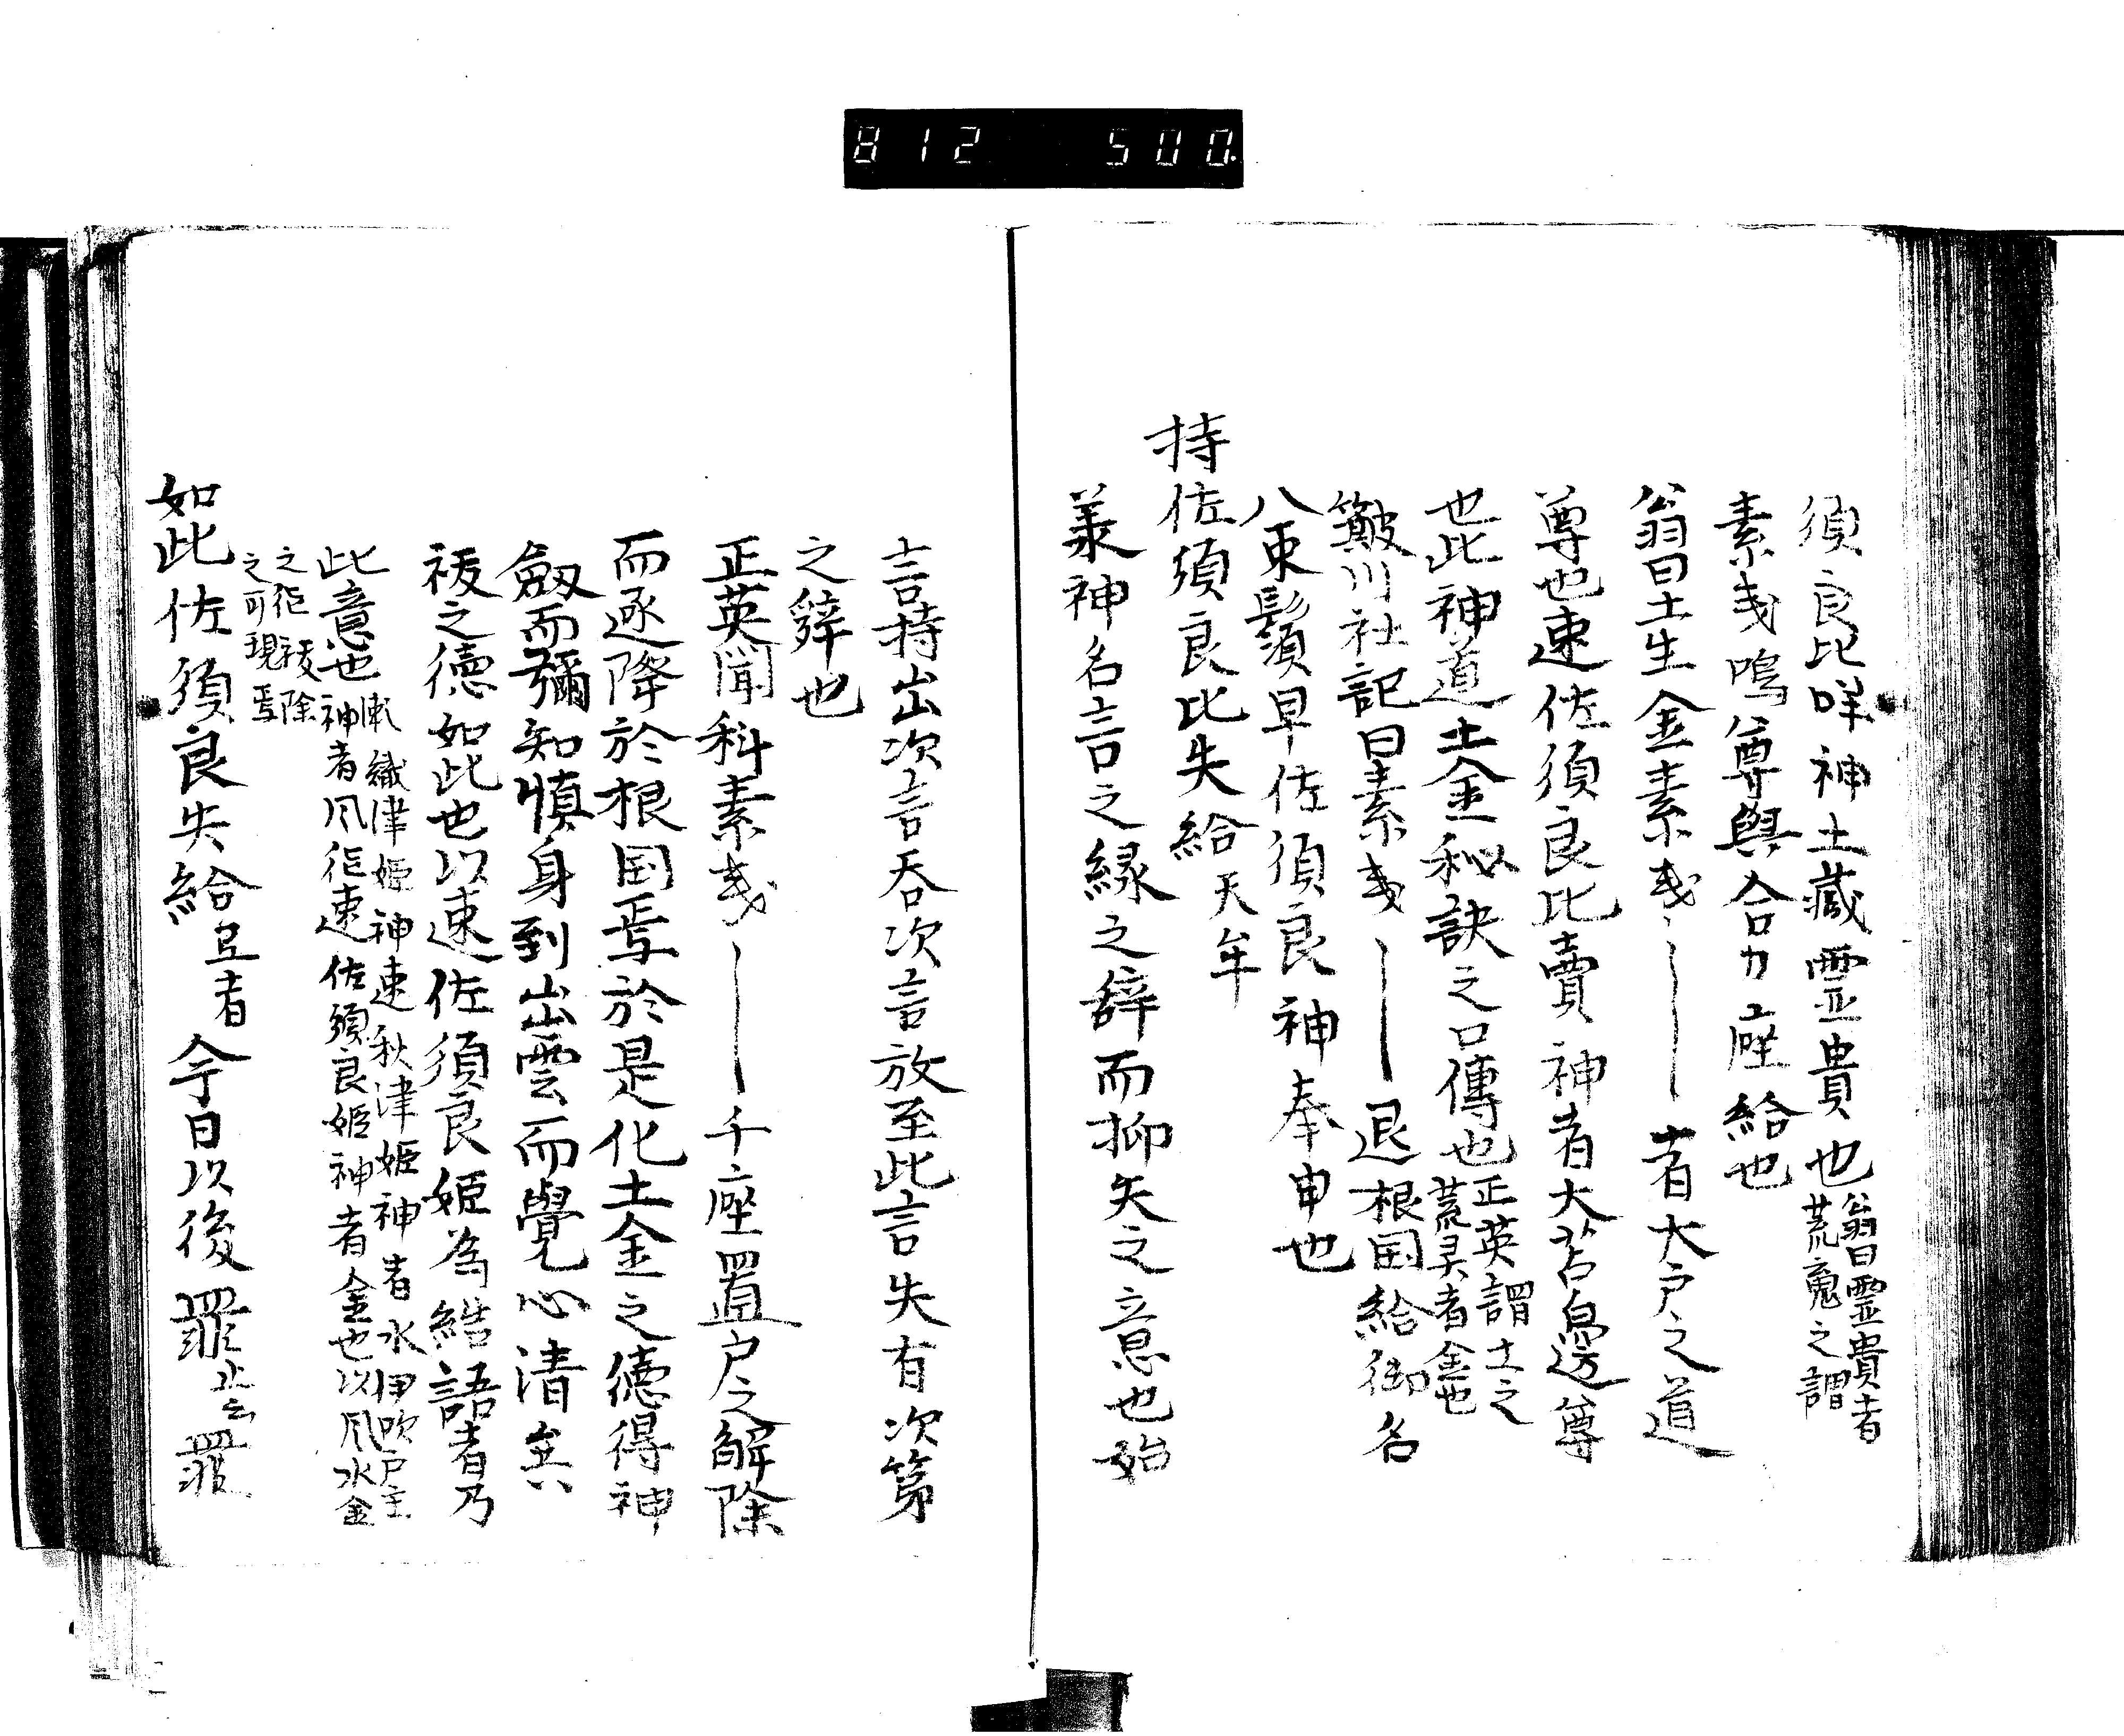 812 500.
須良比咩神土藏霊貴也翁曰霊貴者
荒魂之謂
素戔嗚尊與合力座給也
翁曰土生金素戔――者大戸之道
尊也速佐須良比賣神者大苫邊尊
也此神道土金秘訣之口傳也正英謂土之
荒呉者金也
簸川社記曰素戔――退根国給御名
八束鬚早佐須良神奉申也
持佐須良比失給天牟
義神名言之縁之辞而抑矢之意也始
言持出次言呑次言放至此言失有次第
之辞也
正英聞科素戔――千座置戸之解除
而逐降於根国焉於是化土金之徳得神
劔而彌知慎身到出雲而覺心清矣
祓之徳如此也以速佐須良姫為結語者乃
此意也瀬織津姫神速秋津姫神者水伊吹戸主
神者风作速佐須良姫神者金也以风水金
之作祓除
之可現焉
如此佐須良失給弖者今日以後罪止云罪